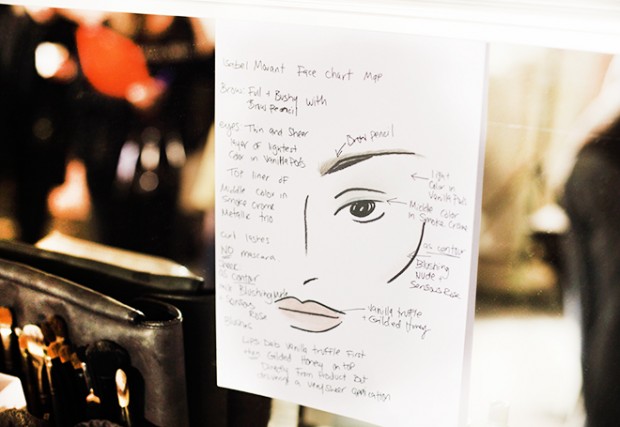 Isabel Marant Face Chart Map
Brow: Full + Bushy with
Brow Pencil
eyes Thin and Sheer
layer of lightest
Color in Vanilla Pods
Top liner of
Middle Color in
Smoke Crome
Metallic trio
Curl lashes
NO mascara
contour
Blushing Nude
Rose
Lips Dab Vanilla truffle First
Gilded Honey on top
Directly From Product But
a very sheer application
Brow pencil
light
Color in
Vanilla Pods
Middle Color
in Smoke Crome
as contour
Blushing
Nude
Sensous Rose
Vanilla truffle
+ Gilded Honey